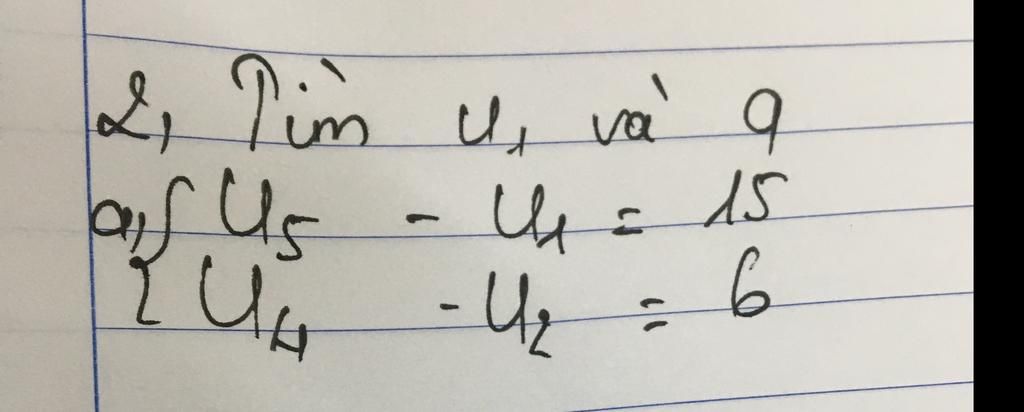 2, Tìm u₁ và q
a, { U₅ - U₁ = 15
{ U₄ - U₂ = 6